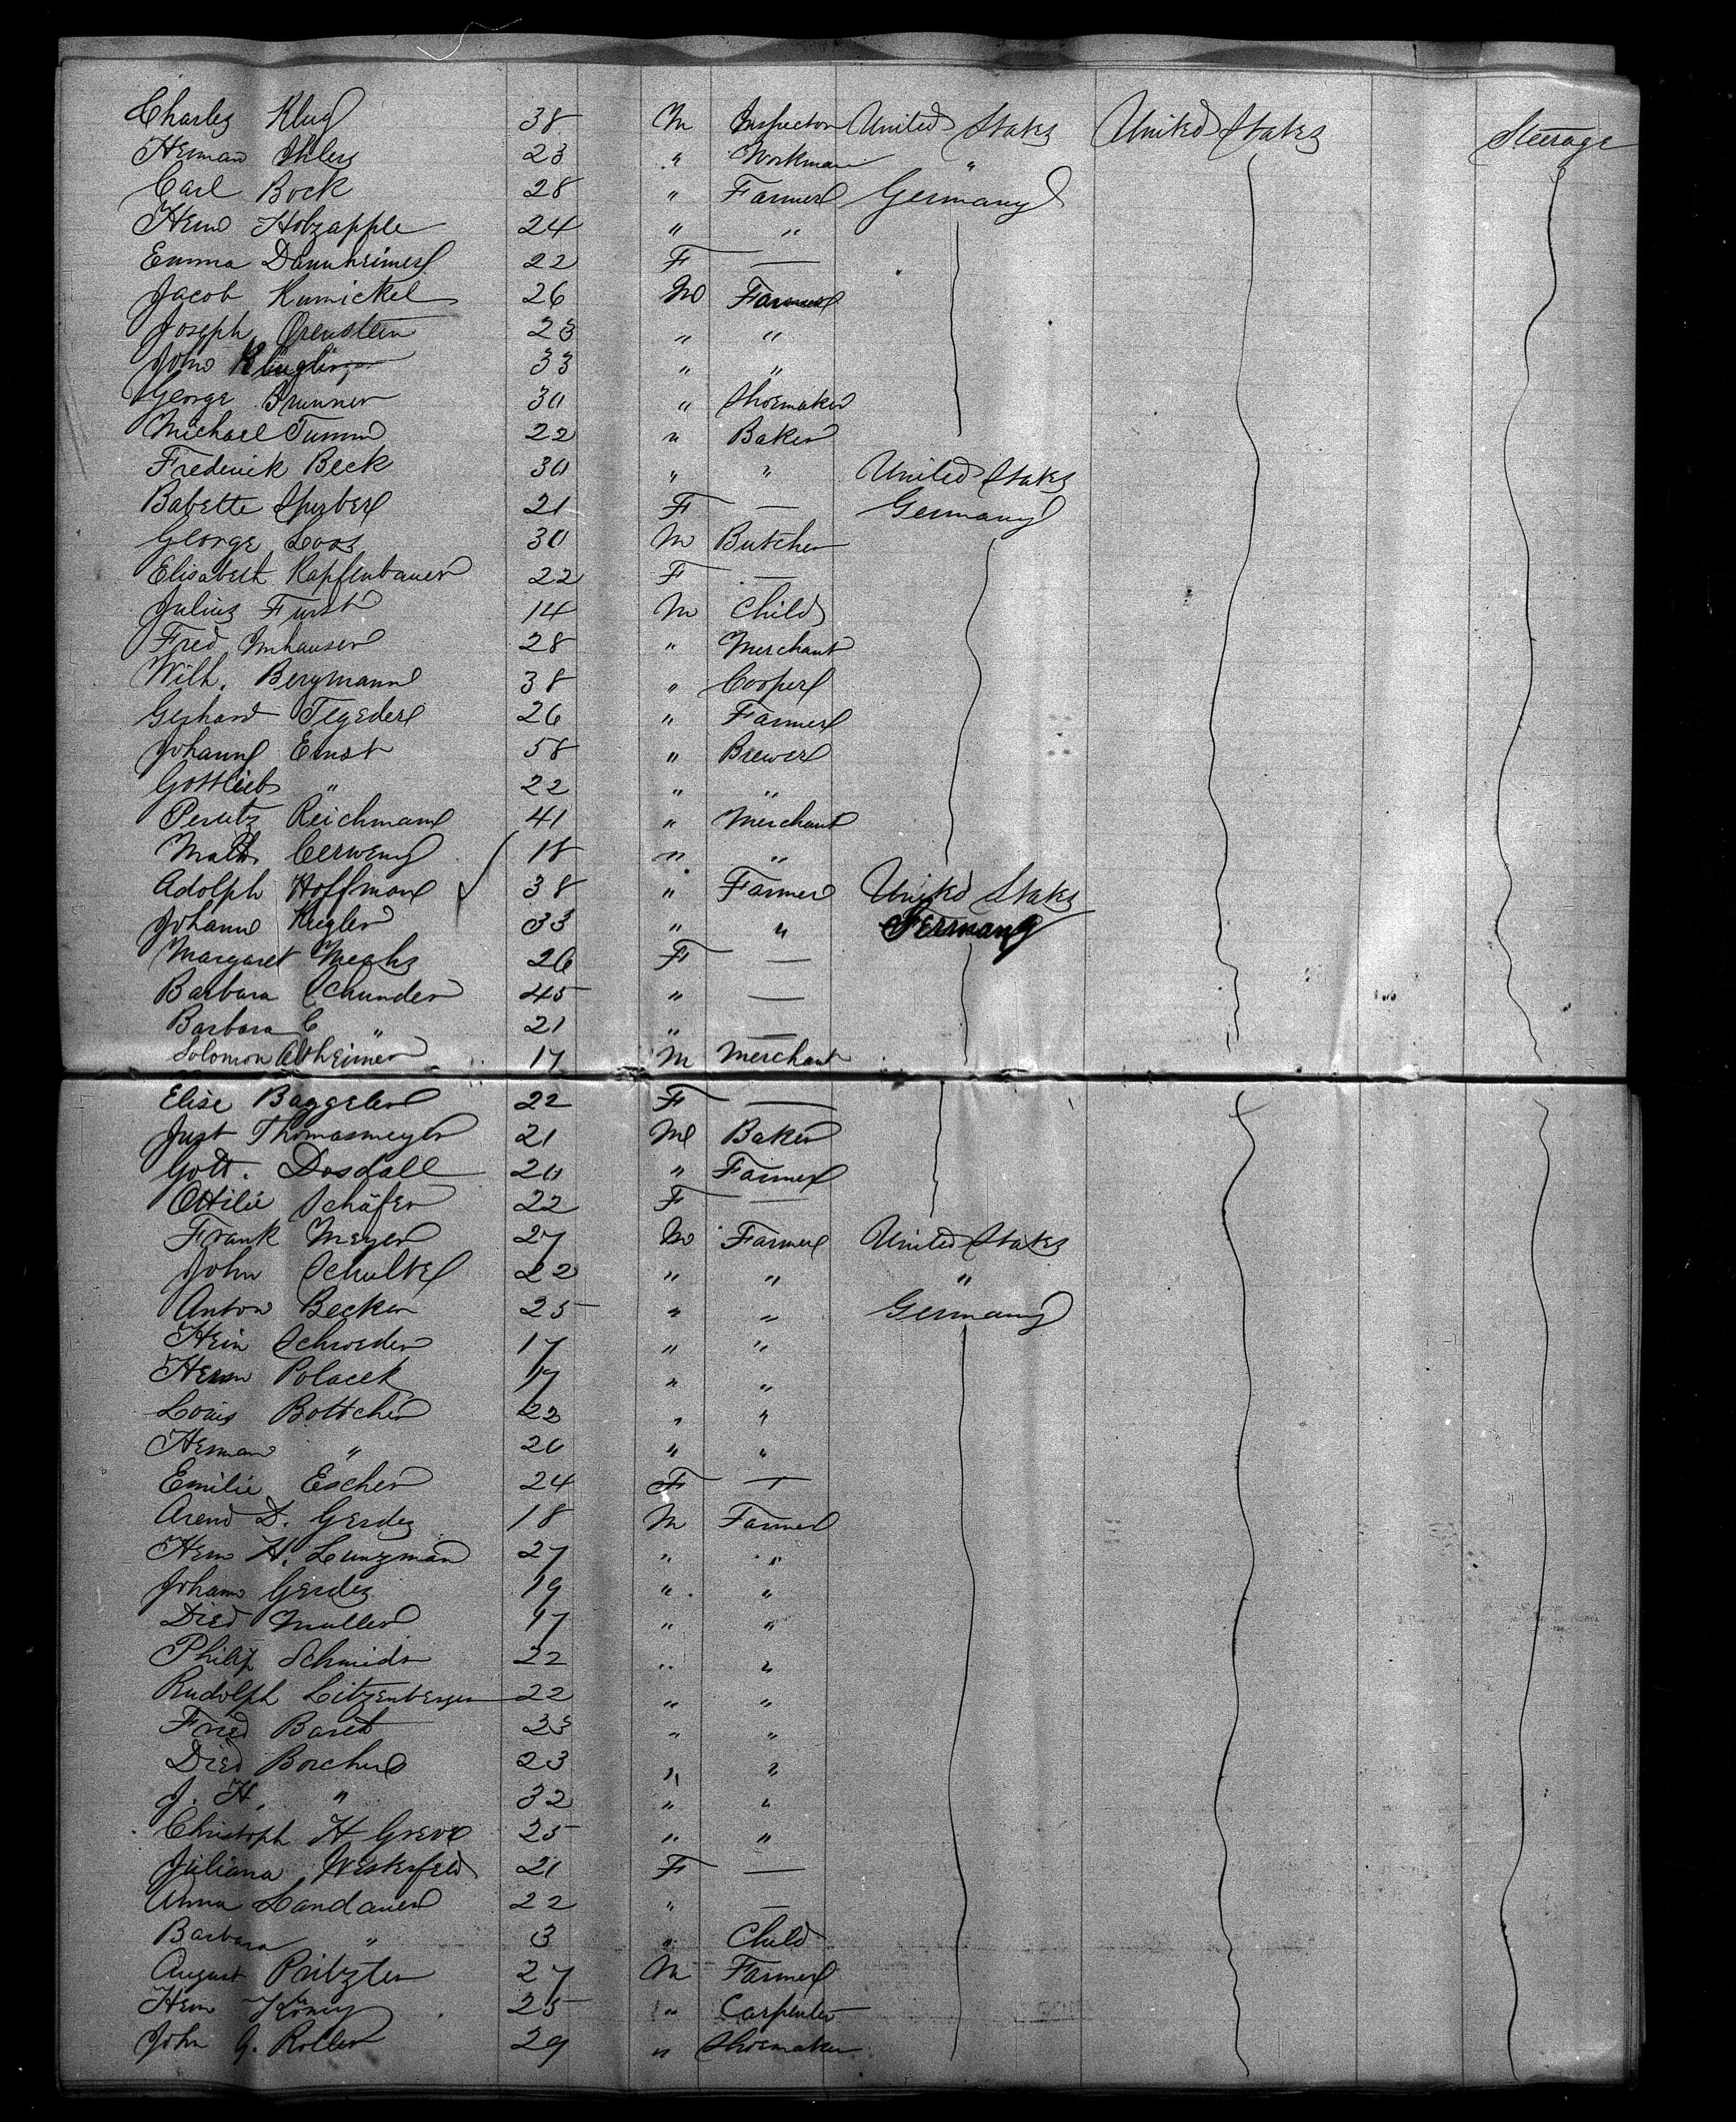 Charles Klug 38 M Inspector United States United States Steerage
Herman Ihlers 23 " Workman "
Carl Bock 28 " Farmer Germany
Hein Holzapple 24 " "
Emma Dannheimer 22 F —
Jacob Kumickel 26 M Farmer
Joseph Orenstein 23 " "
John 33 " "
George Brunner 30 " Shoemaker
Michael Tumm 22 " Baker
Frederick Beck 30 " " United States
Babette Sperber 21 F — Germany
George Loos 30 M Butcher
Elisabeth Kapfenbauer 22 F —
Julius Furst 14 M Child
Fred Imhauser 28 " Merchant
Wilh. Bergmann 38 " Cooper
Gerhard Tegeder 26 " Farmer
Johann Ernst 58 " Brewer
Gottlieb " 22 " "
Perutz Reichmann 41 " Merchant
Math. Cerweny 18 " "
Adolph Hoffman 38 " Farmer United States
Johann Kugler 33 " " Germany
Margaret 26 F —
Barbara Schunder 45 " —
Barbara C " 21 " —
Solomon Altheimer 17 M Merchant
Elise Baggeler 22 F —
Just Thomasmeyer 21 M Baker
Gott. Dosdall 20 " Farmer
Ottilie Schäfer 22 F —
Frank Meyer 27 M Farmer United States
John Schulte 22 " " "
Anton Becker 25 " " Germany
Hein Schroeder 17 " "
Herm Polacek 19 " "
Louis Bottcher 23 " "
Herman " 20 " "
Emilie Escher 24 F —
Arend D. Gerdes 18 M Farmer
Hein H. Lunzman 27 " "
Johann Gerdes 19 " "
Died Muller 17 " "
Philip Schmidt 22 " "
Rudolph Litzenberger 22 " "
Fried Baret 23 " "
Died Borchers 23 " "
J. H. " 32 " "
Christoph H Greve 25 " "
Juliana Westerfeld 21 F —
Anna Landauer 22 " —
Barbara " 3 " Child
August Pritzler 27 M Farmer
Hein König 25 " Carpenter
John G. Roller 29 " Shoemaker